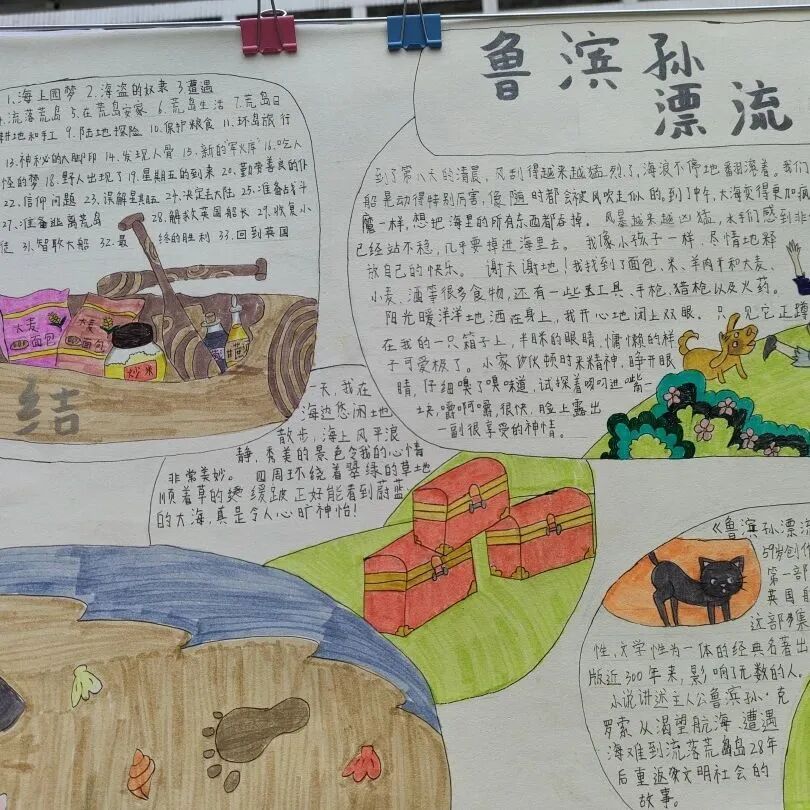 鲁滨孙
漂流
1、海上圆梦 2、海盗的奴隶 3遭遇
流落荒岛 5、在荒岛安家 6、荒岛生活 7、荒岛日
耕地和手工 9、陆地探险 10、保护粮食 11、环岛旅行
13、神秘的大脚印 14、发现人骨 15、新的"军火库" 16、吃人
怪的梦 18、野人出现了 19、星期五的到来 20、勤劳善良的仆
22、信仰问题 23、误解星期五 24、决定去大陆 25、准备战斗
27、准备逃离荒岛 28、解救英国船长 29、收复小
徒 31、智取大船 32、最终的胜利 33、回到英国
大麦
面包
大麦
面包
炒米
结
到了第八天的清晨，风刮得越来越猛烈了，海浪不停地翻滚着。我们
船是动得特别厉害，像随时都会被风吹走似的，到了中午，大海变得更加疯
魔一样，想把海里的所有东西都吞掉。风暴越来越凶猛，水手们感到非
已经站不稳，几乎要掉进海里去。我像小孩子一样，尽情地释
放自己的快乐。谢天谢地！我找到了面包、米、羊肉干和大麦、
小麦、酒等很多食物，还有一些工具、手枪、猎枪以及火药。
阳光暖洋洋地洒在身上，我开心地闭上双眼，只见它正蹲
在我的一只箱子上，半眯的眼睛，慵懒的样
子可爱极了。小家伙顿时来精神，睁开眼
睛，仔细嗅了嗅味道，试探着叼进嘴一
块，嚼啊嚼，很快，脸上露出
一副很享受的神情。
一天，我在
海边悠闲地
散步，海上风平浪
静，秀美的景色令我的心情
非常美妙。四周环绕着翠绿的草地
顺着草的缓坡正好能看到蔚蓝
的大海，真是令人心旷神怡！
《鲁滨孙漂流
59岁创作
第一部
英国
这部多集
性、文学性为一体的经典名著出
版近300年来，影响了无数的人。
小说讲述主人公鲁滨孙·克
罗索从渴望航海，遭遇
海难到流落荒岛28年
后重返文明社会的
故事。